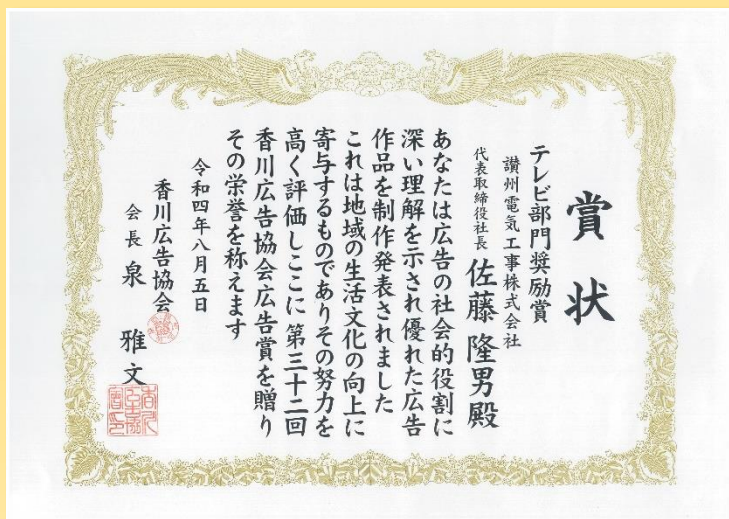 賞状
テレビ部門奨励賞
讃州電気工事株式会社
代表取締役社長 佐藤隆男殿
あなたは広告の社会的役割に
深い理解を示され優れた広告
作品を制作発表されました
これは地域の生活文化の向上に
寄与するものでありその努力を
高く評価しここに第三十二回
香川広告協会広告賞を贈り
その栄誉を称えます
令和四年八月五日
香川広告協会
会長 泉雅文